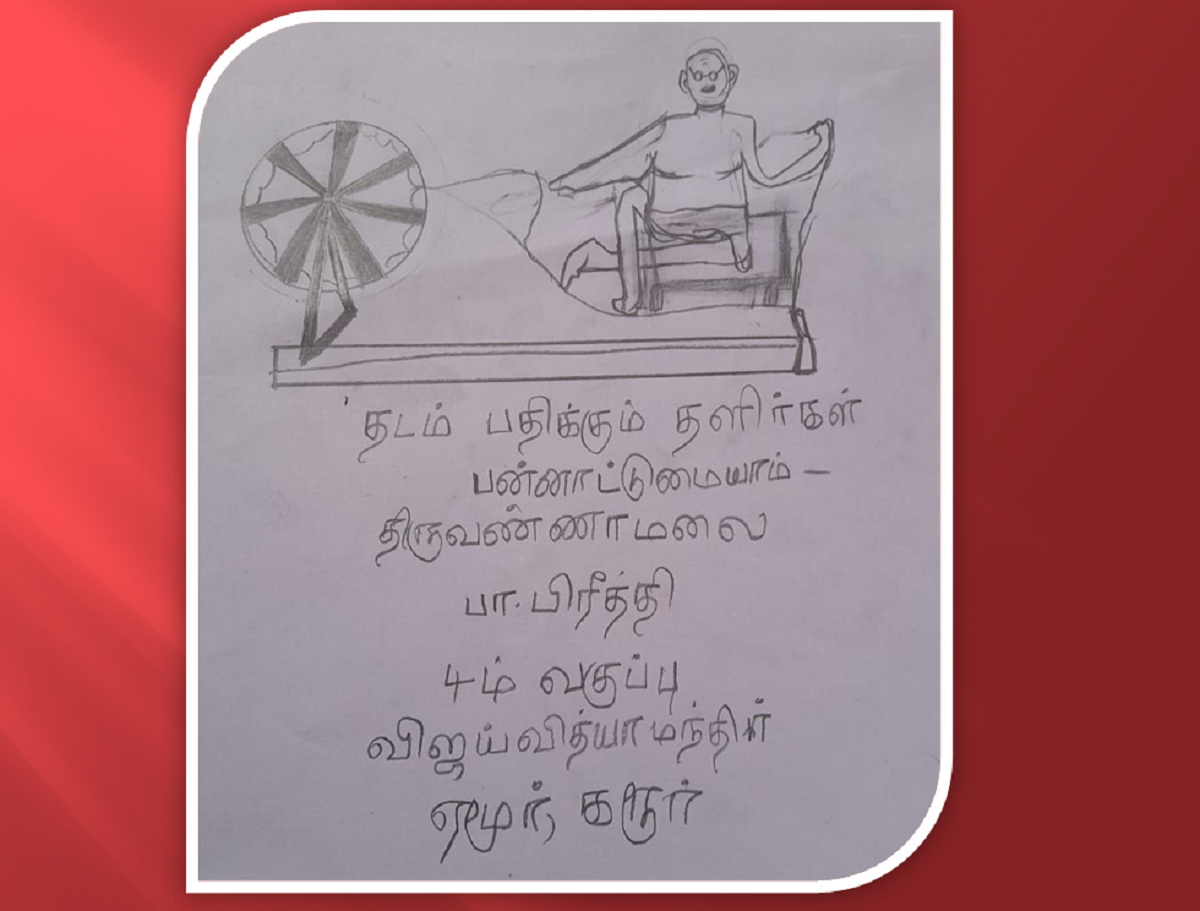 'தடம் பதிக்கும் தளிர்கள்
பன்னாட்டுமையாம் –
திருவண்ணாமலை
பா. பிரீத்தி
4-ம் வகுப்பு
விஜய்வித்யாமந்திர்
ஏமூர், கரூர்